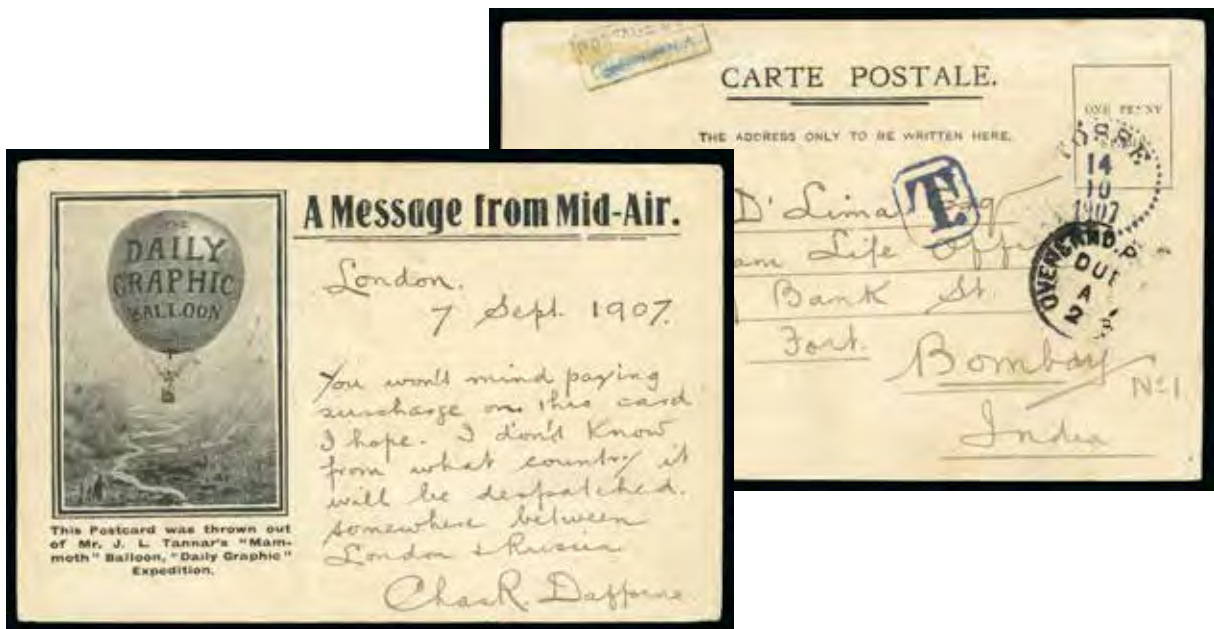 THE
DAILY
GRAPHIC
BALLOON
This Postcard was thrown out
of Mr. J. L. Tannar's "Mam-
moth" Balloon, "Daily Graphic"
Expedition.
A Message from Mid-Air.
London.
7 Sept. 1907.
You won't mind paying
surcharge on this card
I hope. I don't know
from what country it
will be despatched.
somewhere between
London & Russia
Chas R.
CARTE POSTALE.
THE ADDRESS ONLY TO BE WRITTEN HERE.
ONE PENNY
TOSSE
14
10
1907
T
D'Lima Esq
am Life Offi
Bank St.
Fort.
Bombay
India
No 1
OVERLAND. P
DUE
A
2